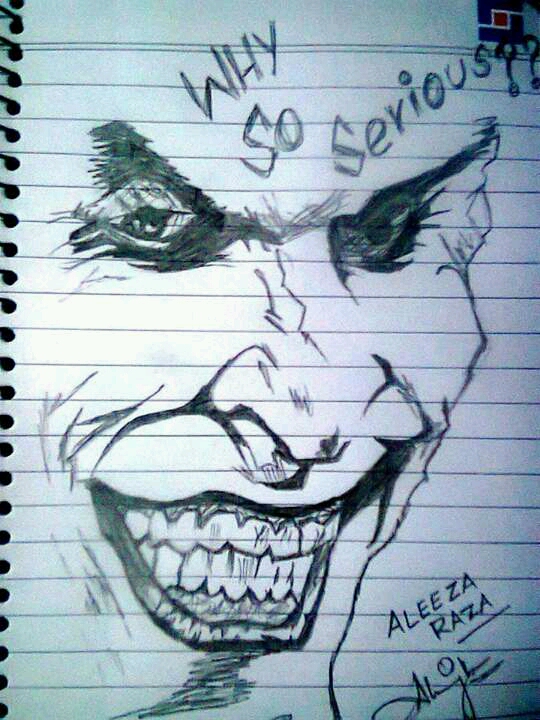 WHY
SO Serious??
ALEEZA
RAZA